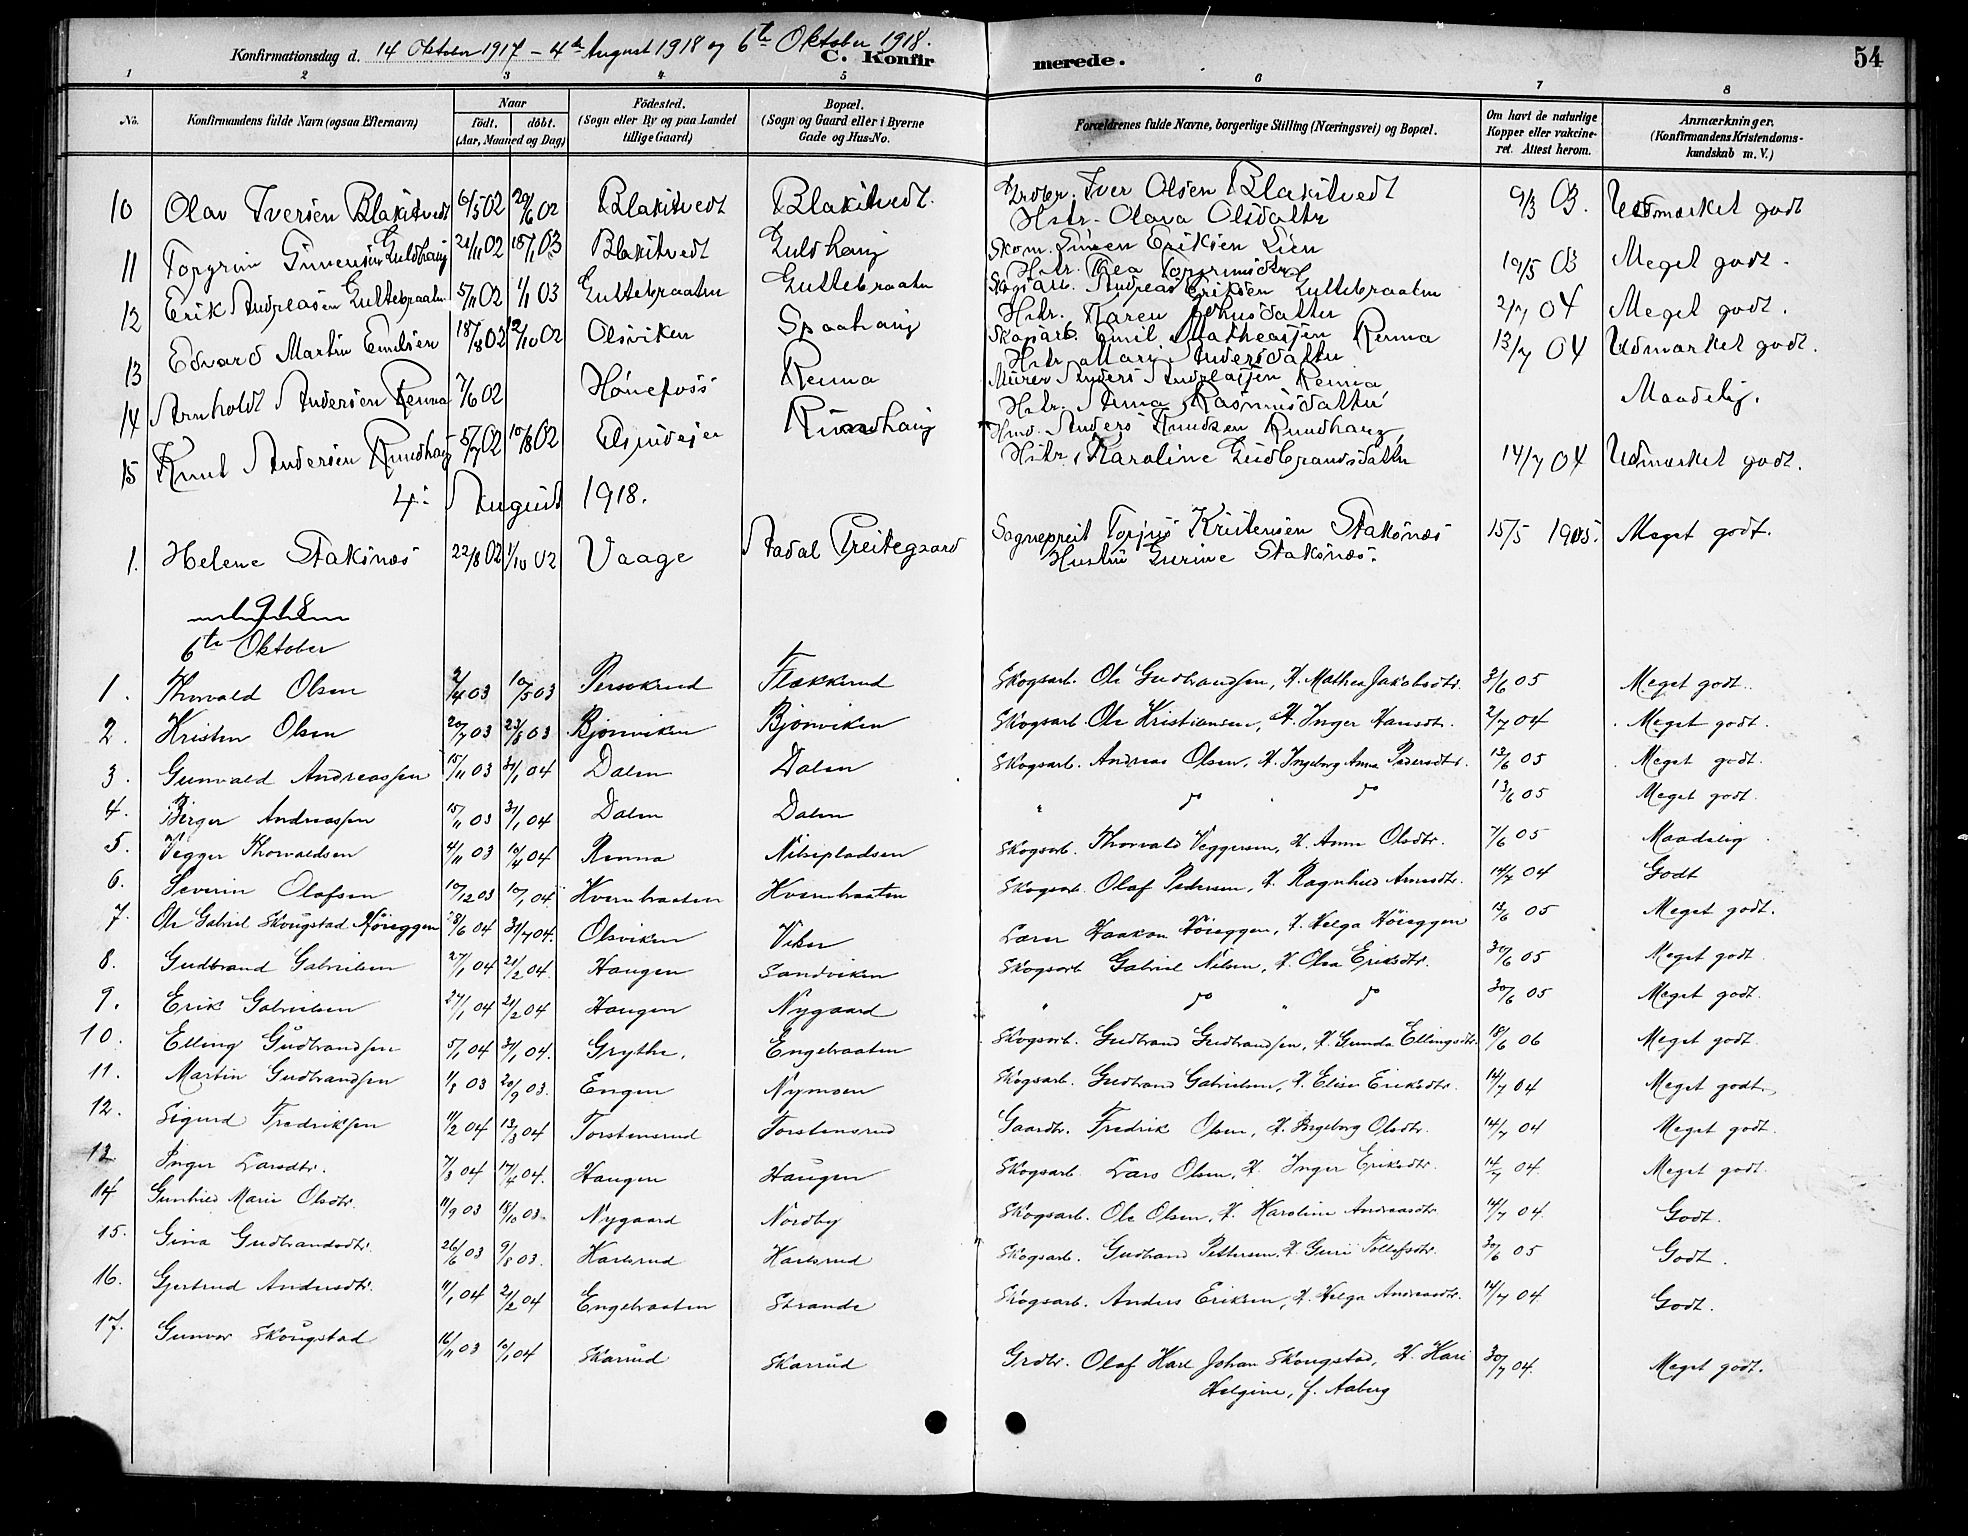 Konfirmationsdag d. 14 Oktober 1917 – 4de August 1918 og 6te Oktober 1918.
C. Konfirmerede.
54
1 2 3 4 5 6 7 8
No. Konfirmandens fulde Navn (ogsaa Efternavn) Naar födt. döbt. (Aar, Maaned og Dag) Födested. (Sogn eller By og paa Landet tillige Gaard) Bopæl. (Sogn og Gaard eller i Byerne Gade og Hus-No. Forældrenes fulde Navne, borgerlige Stilling (Næringsvei) og Bopæl. Om havt de naturlige Kopper eller vakcineret. Attest herom. Anmærkninger. (Konfirmandens Kristendomskundskab m. V.)
10 Olav Iversen Blakstvedt 6/5 02 29/6 02 Blakstvedt Blakstvedt. Iver Olsen Blakstvedt Hstr. Olava Olsdatter 9/3 03. Udmærket godt
11 Torgrim Simensen Guldhaug 21/11 02 18/1 03 Blakstvedt Guldhaug Skom. Simen Eriksen Lien Hstr. Thea Torgrimsdtr. 19/5 03 Meget godt.
12 Erik Andreasen Gultebraaten 5/11 02 1/1 03 Gultebraaten Gultebraaten Skogsarb. Andreas Eriksen Gultebraaten Hstr. Karen Johnsdatter 2/7 04 Meget godt.
13 Edvard Martin Emilsen 18/8 02 12/10 02 Olsviken Spaahaug Skogsarb. Emil Matheassen Renna Hstr. Mari Andersdatter 13/7 04 Udmærket godt.
14 Arnholdt Andersen Renna 7/6 02 Hønefoss Renna Murer Anders Andreassen Renna Hstr. Anna Rasmusdatter Maadelig.
15 Knut Andersen Rundhaug 5/7 02 10/8 02 Elsrudeje Rundhaug Hmd. Anders Knudsen Rundhaug, Hstr. Karoline Gudbrandsdatter 14/7 04 Udmærket godt.
4: August 1918.
1. Helene Staksnæs 22/8 02 1/10 02 Vaage Aadal Prestegaard Sogneprest Torjus Kristensen Staksnæs Hustru Gurine Staksnæs. 15/5 1905. Meget godt.
1918
6te Oktober
1. Thorvald Olsen 2/4 03 10/5 03 Persokrud Flækkerud Skogsarb. Ole Gudbrandsen, H. Mathea Jakobsdtr. 3/6 05 Meget godt.
2. Kristen Olsen 20/7 03 23/8 03 Bjonviken Bjonviken Skogsarb. Ole Kristiansen, H. Inger Hansdtr. 2/7 04 Meget godt.
3. Gunvald Andreassen 15/11 03 31/1 04 Dalen Dalen Skogsarb. Andreas Olsen, H. Ingeborg Anna Pedersdtr. 13/6 05 Meget godt.
4. Birger Andreassen 15/11 03 31/1 04 Dalen Dalen " do " do 13/6 05 Meget godt.
5. Vegger Thorvaldsen 4/11 03 10/4 04 Renna Nilsepladsen Skogsarb. Thorvald Veggersen, H. Anne Olsdtr. 7/6 05 Maadelig
6. Severin Olafsen 10/12 03 10/1 04 Hvernbraaten Hvernbraaten Skogsarb. Olaf Pedersen, H. Ragnhild Arnesdtr. 14/7 04 Godt
7. Ole Gabriel Skougstad Höieggen 28/6 04 31/7 04. Olsviken Viker Lærer Haakon Höieggen, H. Helga Höieggen 13/6 05 Meget godt.
8. Gudbrand Gabrielsen 27/1 04 21/2 04. Haugen Sandviken Skogsarb. Gabriel Nilsen, H. Olea Eriksdtr. 30/6 05 Meget godt.
9. Erik Gabrielsen 27/1 04 21/2 04 Haugen Nygaard " do " do 30/6 05 Meget godt.
10. Elling Gudbrandsen 5/1 04 31/1 04. Grythe, Engebraaten Skogsarb. Gudbrand Gudbrandsen, H. Gunda Ellingsdtr. 18/6 06 Meget godt.
11. Martin Gudbrandsen 1/8 03 20/9 03. Engen Nymoen Skogsarb. Gudbrand Gabrielsen, H. Elise Eriksdtr. 14/7 04 Meget godt.
12. Sigurd Fredriksen 11/2 04 13/3 04 Torstensrud Torstensrud Gaardbr. Fredrik Olsen, H. Ingeborg Olsdtr. 14/7 04 Meget godt.
13 Inger Larsdtr. 7/3 04 17/4 04. Haugen Haugen Skogsarb. Lars Olsen, H. Inger Eriksdtr. 14/7 04. Meget godt.
14 Gunhild Marie Olsdtr. 11/9 03 18/10 03. Nygaard Nordby Skogsarb. Ole Olsen, H. Karoline Andreasdtr. 14/7 04. Godt.
15. Gina Gudbrandsdtr. 26/6 03 9/8 03. Karlsrud Karlsrud Skogsarb. Gudbrand Pettersen, H. Guri Tollefsdtr. 30/6 05 Godt.
16. Gjertrud Andersdtr. 11/1 04 21/2 04 Engebraaten Strande Skogsarb. Anders Eriksen, H. Helga Andreasdtr. 14/7 04 Godt.
17. Gunvor Skougstad 16/11 03 10/1 04 Skarrud Skarrud Grdbr. Olaf Karl Johan Skougstad, H. Kari Helgine, f. Aaberg 30/7 04. Meget godt.